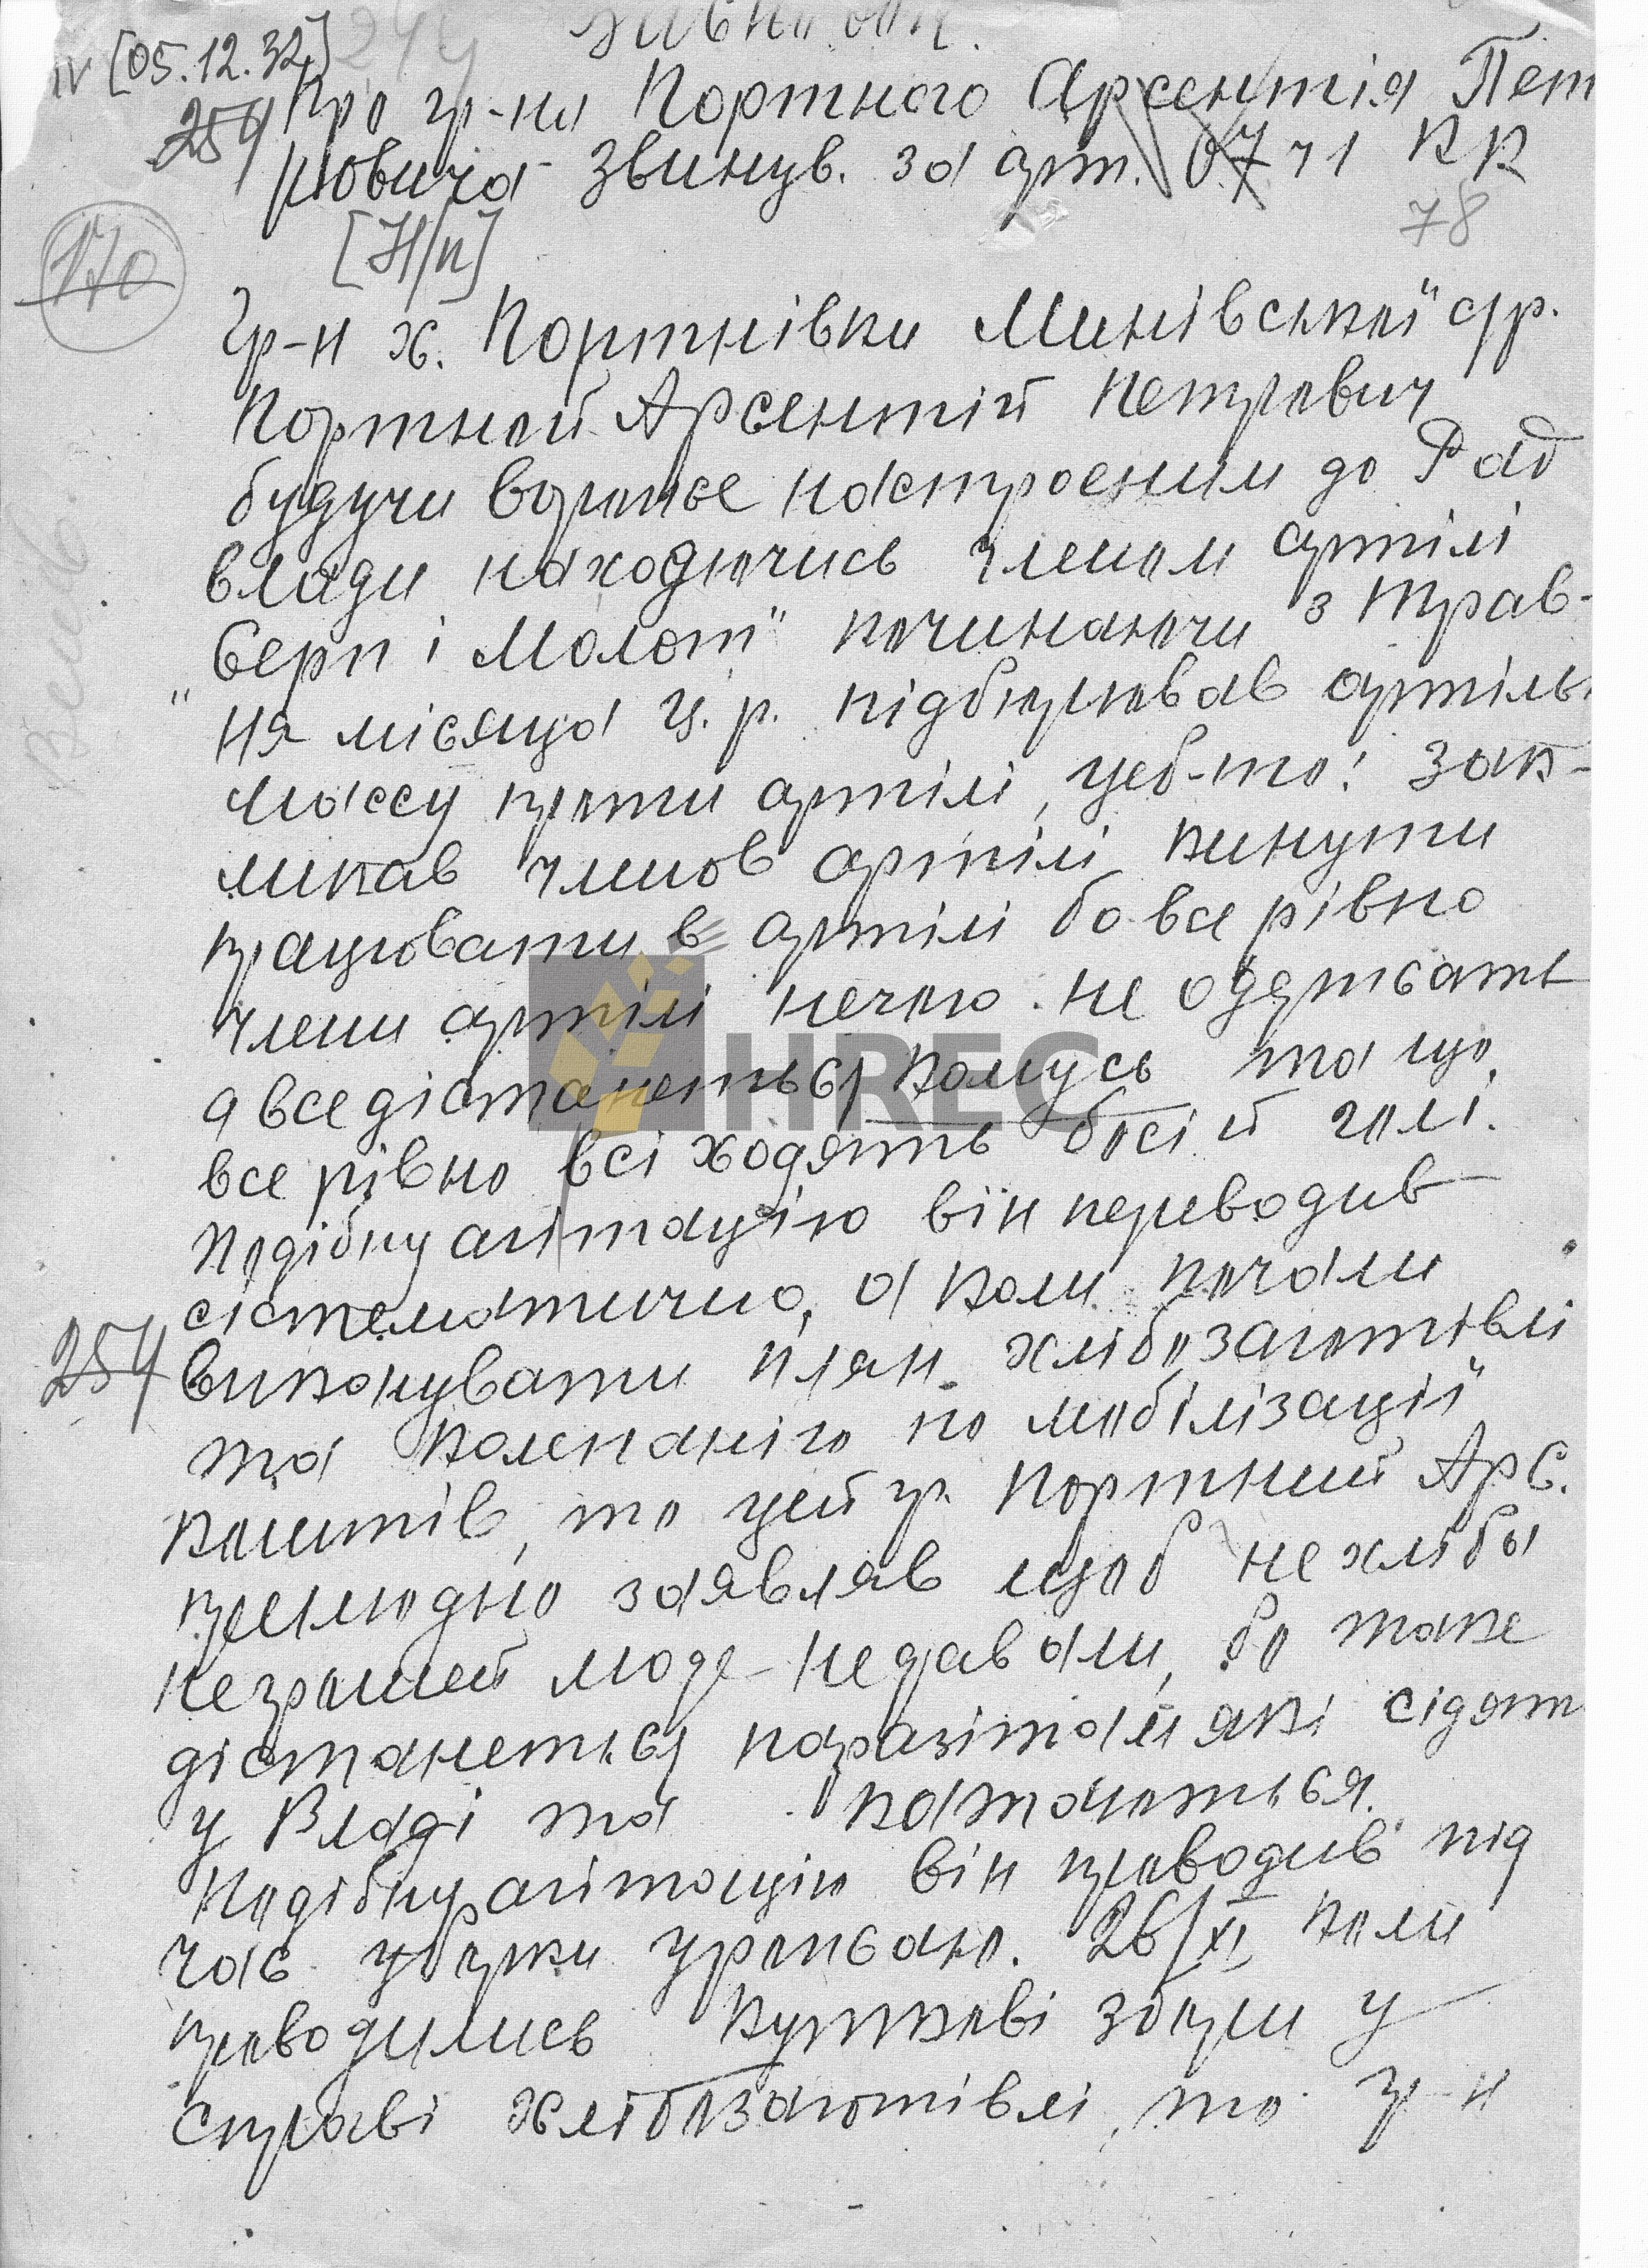 IV [05.12.32]
254 Про гр-на Портного Арсентія Пет
ровича звинув. за арт. 71 КК
[Н/п]
78
170
Гр-н х. Портнівки Минівської с/р.
Портной Арсентій Петрович
будучи вороже настроеним до Рад
влади находючись членом артілі
"Серп і Молот" починаючи з трав-
ня місяца ц. р. підбурював артільн
массу проти артілі, цеб-то: зак-
ликав членов артілі кинути
працювати в артілі бо все рівно
члени артілі нечого не одержать
а все дістанеться комусь та що,
все рівно всі ходять босі й голі.
Подібну агітацію він переводив
сістематично, а коли почали
виконувати плян хлібозаготівлі
та компанію по мобілізації
коштів, то цей гр. Портний Арс.
прелюдно заявляв щоб не хліба
не грошей люде недавали, бо таке
дістанеться паразітам які сідят
у Владі та катаються.
Подібну агітацію він проводив під
час уборки урожаю. 26/XI коли
проводились куткові збори у
справі хлібозаготівлі, то гр-н
254
HREC